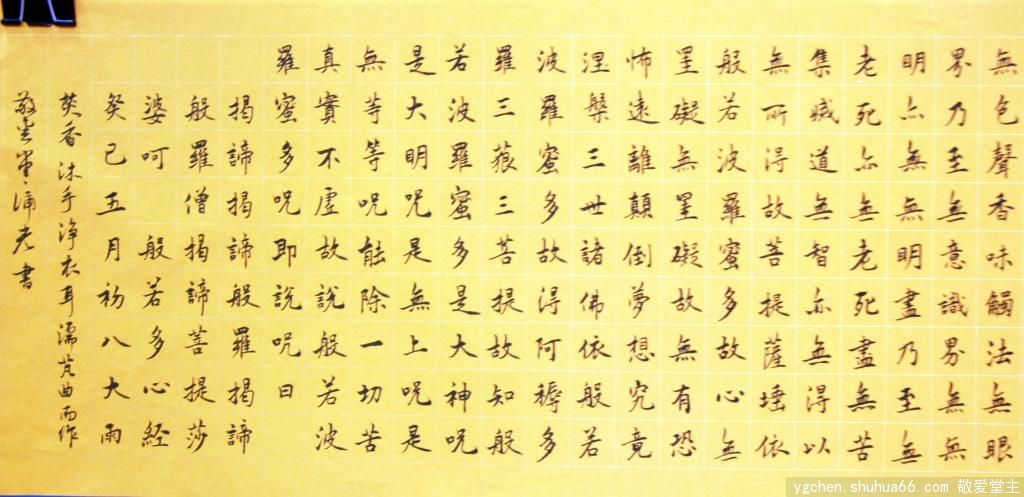 無色聲香味觸法無眼
界乃至無意識界無無
明亦無無明盡乃至無
老死亦無老死盡無苦
集滅道無智亦無得以
無所得故菩提薩埵依
般若波羅蜜多故心無
罣礙無罣礙故無有恐
怖遠離顛倒夢想究竟
涅槃三世諸佛依般若
波羅蜜多故得阿耨多
羅三藐三菩提故知般
若波羅蜜多是大神咒
是大明咒是無上咒是
無等等咒能除一切苦
真實不虛故說般若波
羅蜜多咒即說咒曰
揭諦揭諦般羅揭諦
般羅僧揭諦菩提莎
婆呵 般若多心經
癸巳五月初八大雨
焚香沐手淨衣耳濡梵曲而作
敬愛堂書
ygchen.shuhua66.com 敬爱堂主